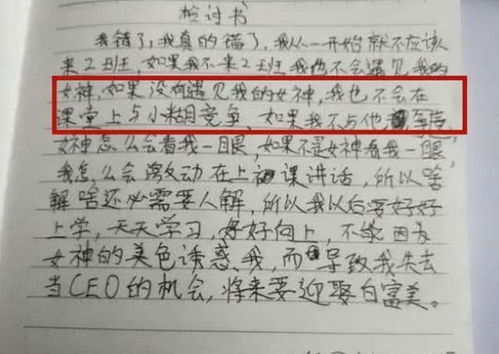 检讨书
我错了,我真的错了,我从一开始就不应该
来2班,如果我不来2班我也不会遇见我的
女神,如果没有遇见我的女神,我也不会在
课堂上与小糊竞争,如果我不与他竞争,
女神怎么会看我一眼,如果不是女神看我一眼,
我怎么会激动在上课讲话,所以啥
解啥还必需要人解,所以我以后要好好
上学,天天学习,每好向上,不能因为
女神的美色诱惑我,而导致我失去
当CEO的机会,将来要迎娶白富美。